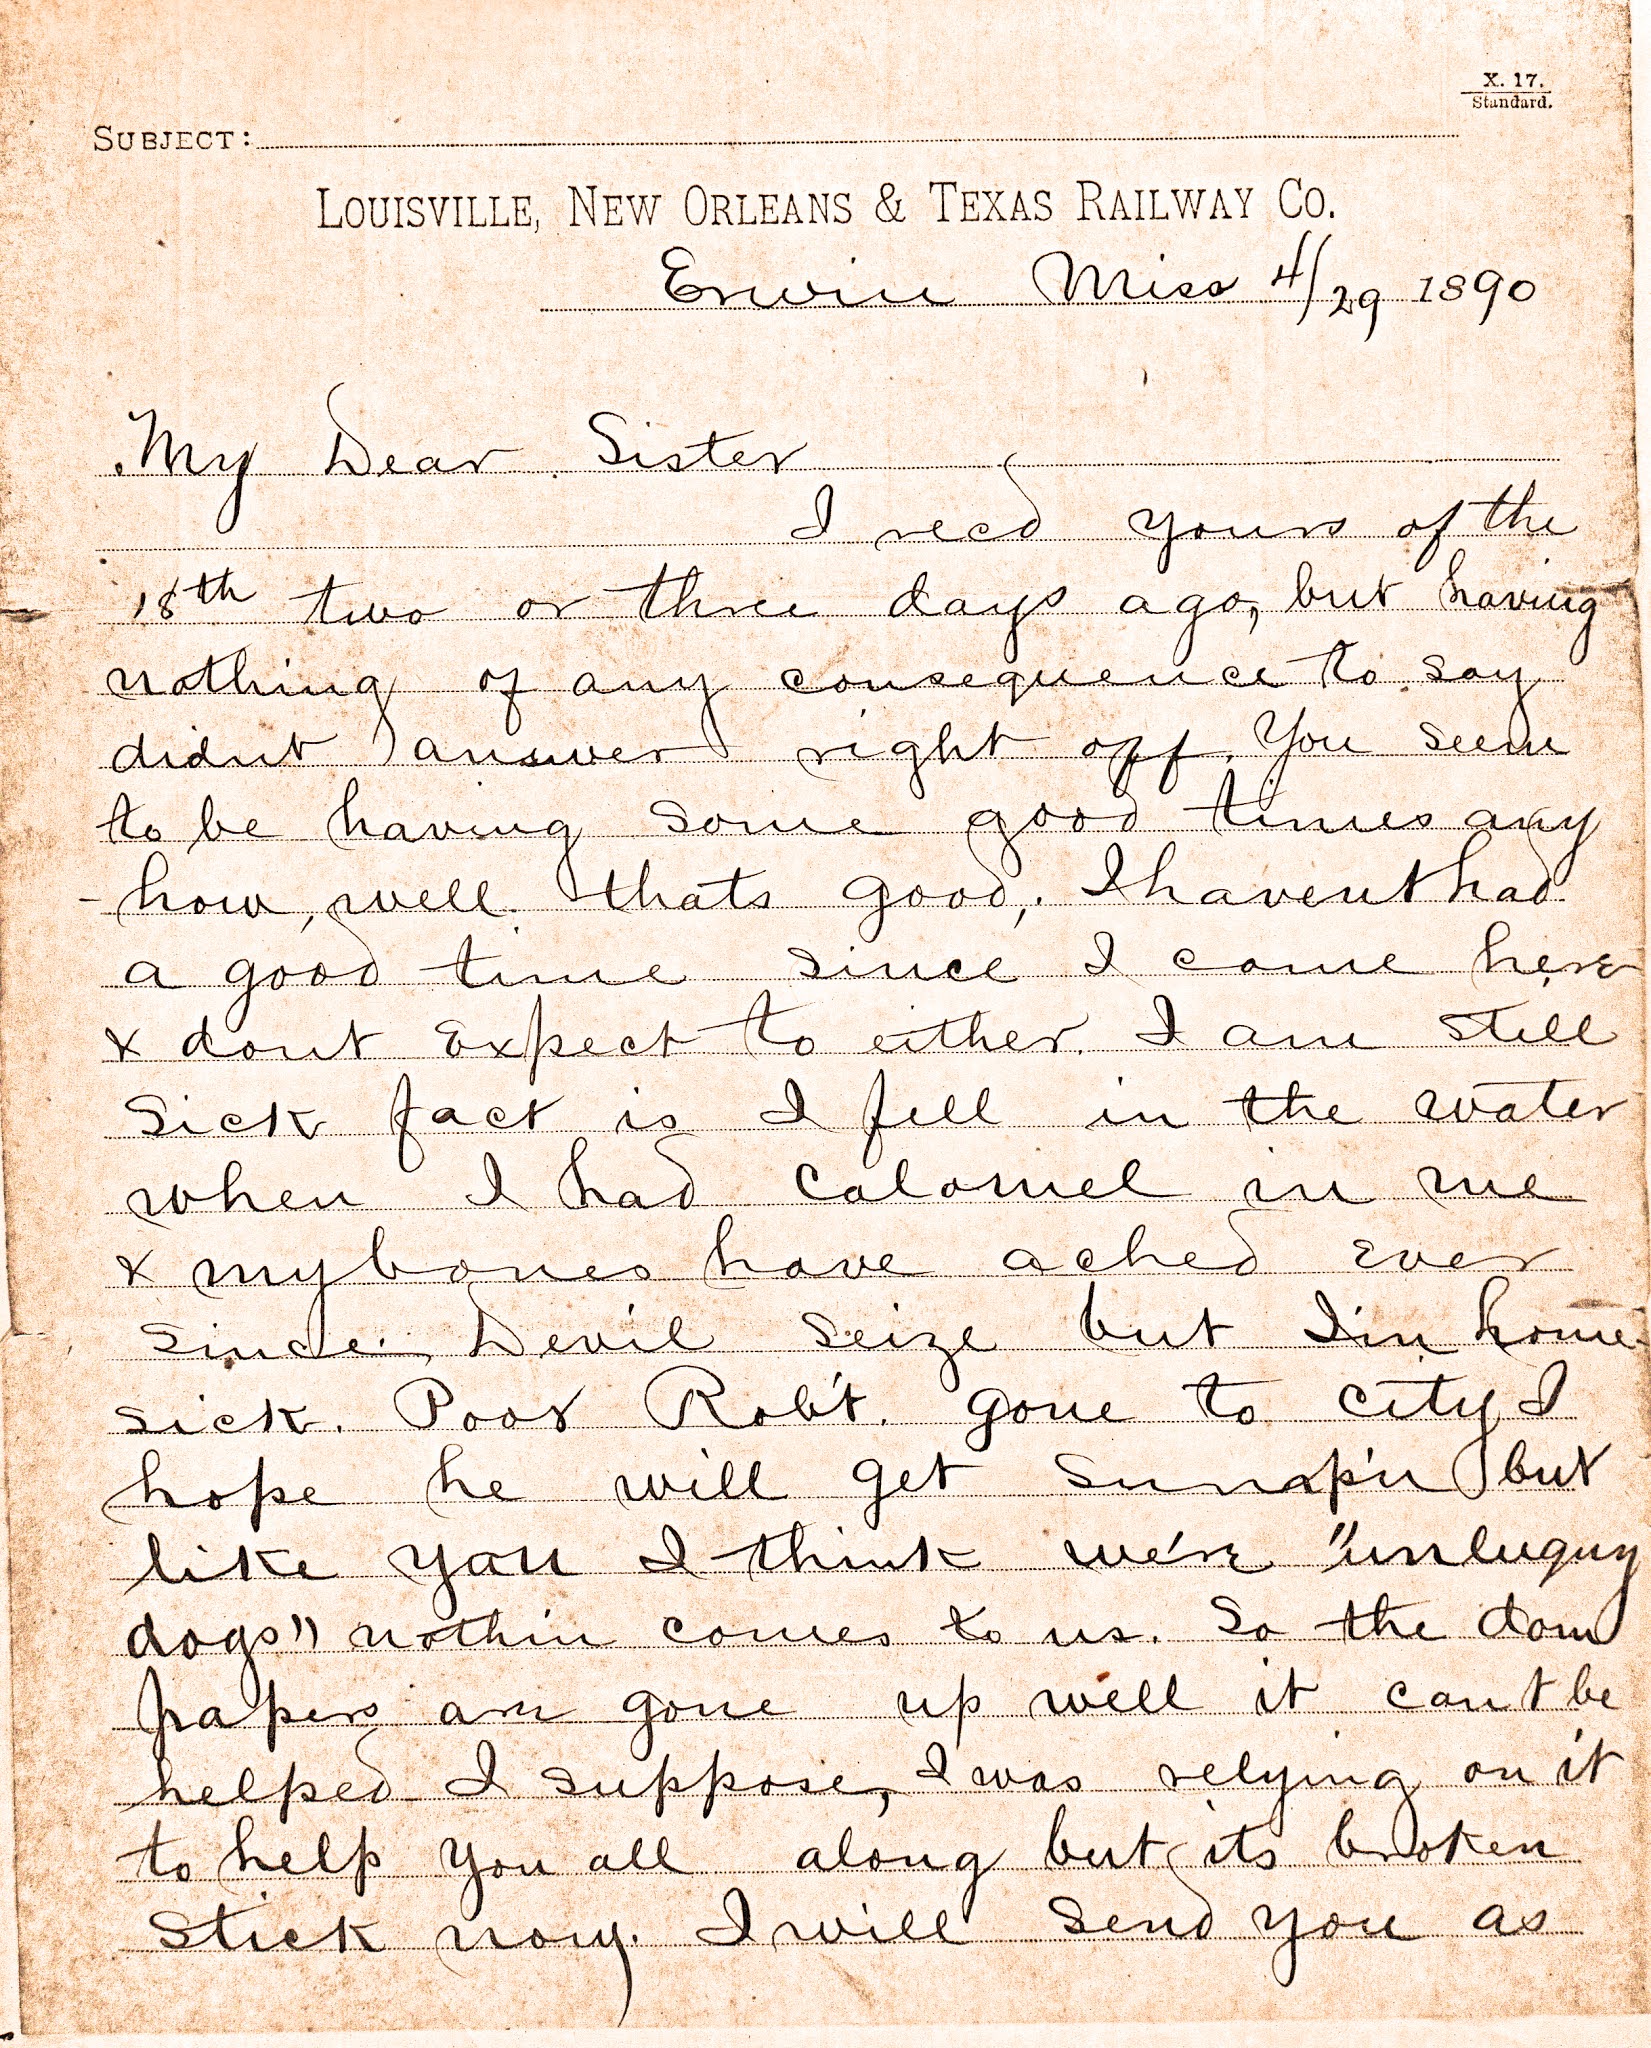 X. 17.
Standard.
SUBJECT:
LOUISVILLE, NEW ORLEANS & TEXAS RAILWAY CO.
Erwin Miss 4/29 1890
My Dear Sister
I recd yours of the
18th two or three days ago, but having
nothing of any consequence to say
didnt answer right off. You seem
to be having some good times any
how, well thats good, I havent had
a good time since I came here
& dont Expect to either. I am still
sick fact is I fell in the water
when I had calomel in me
& my bones have ached ever
since. Devil seize but I'm home
sick. Poor Rob't. gone to city I
hope he will get sumpn but
like you I think we're "unluquy
dogs" nothin comes to us. So the dam
papers am gone up well it cant be
helped I suppose, I was relying on it
to help you all along but its broken
stick now. I will send you as